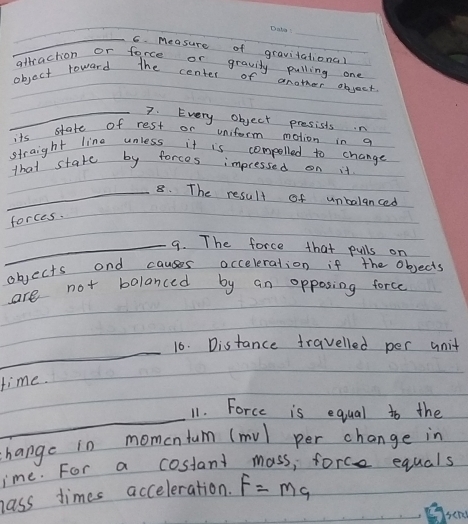 Date:
6. Measure of gravitational
attraction or force or gravity pulling one
object toward the center of another object.
7. Every object presists in
its state of rest or uniform motion in a
straight line unless it is compelled to change
that state by forces impressed on it.
8. The result of unbalanced
forces.
9. The force that pulls on
objects and causes acceleration if the objects
are not balanced by an opposing force
10. Distance travelled per unit
time.
11. Force is equal to the
change in momentum (mv) per change in
ime. For a costant mass, force equals
mass times acceleration. F = ma